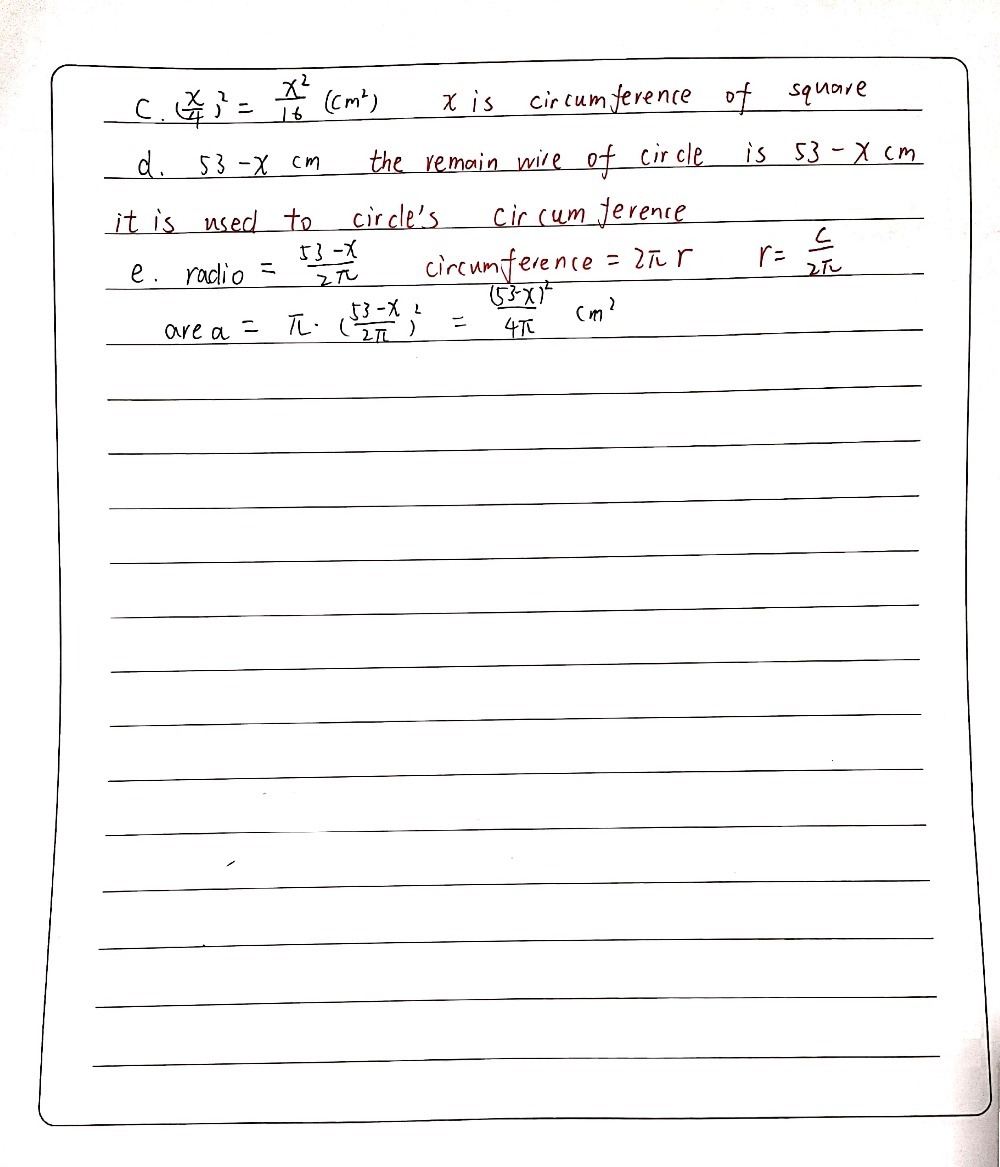 c. (x/4)² = x²/16 (cm²) x is circumference of square
d. 53 - x cm the remain wire of circle is 53 - x cm
it is used to circle's circumference
e. radio = 53-x/2π circumference = 2π r r = c/2π
area = π · (53-x/2π)² = (53-x)²/4π cm²